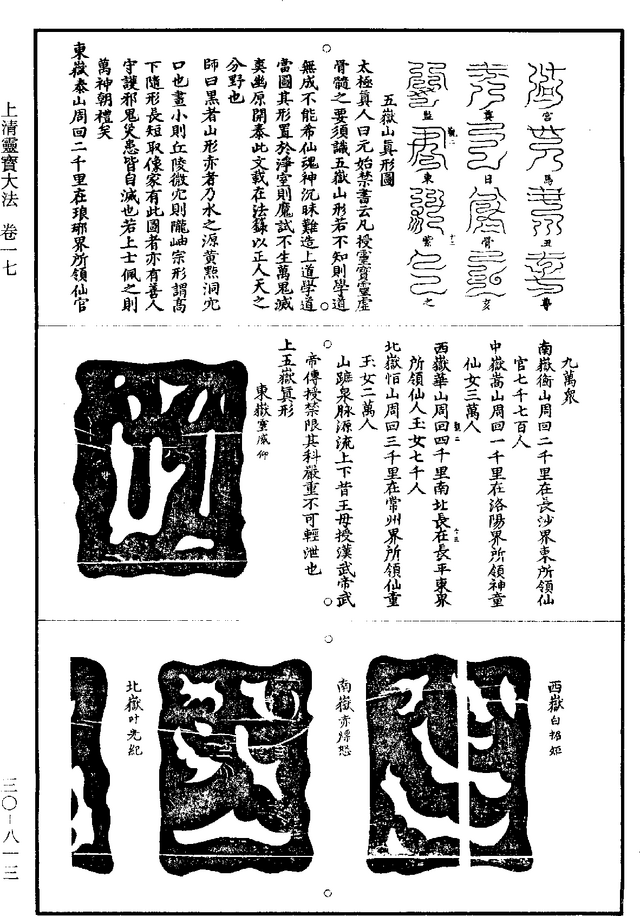 宮 馬 丑 尊
真 日 骨 亥
監 東 紫 之
五嶽山真形圖
太極真人曰元始禁書云凡授靈寶靈虛
骨髓之要須識五嶽山形若不知則學道
無成不能希仙魂神沉昧難造上道學道
當圖其形置於淨室則魔試不生萬鬼滅
爽幽原開泰此文載在法籙以正人天之
分野也
師曰黑者山形亦者乃水之源黄點洞宂
口也畫小則丘陵微宂則隴岫宗形謂高
下隨形長短取像家有此圖者亦有善人
守護邪鬼災患皆自滅也若上士佩之則
萬神朝禮矣
東嶽泰山周回二千里在琅琊界所領仙官
九萬衆
南嶽衡山周回二千里在長沙界東所領仙
官七千七百人
中嶽嵩山周回一千里在洛陽界所領神童
仙女三萬人
西嶽華山周回四千里南北長在長平東界
所領仙人玉女七千人
北嶽恒山周回三千里在常州界所領仙童
玉女二萬人
山蹠泉脉源流上下昔王母授漢武帝武
帝傳授禁限其科嚴重不可輕泄也
上五嶽真形
東嶽靈威仰
西嶽白招姫
南嶽赤熛怒
北嶽叶光紀
上清靈寶大法 卷一七
三〇-八一三